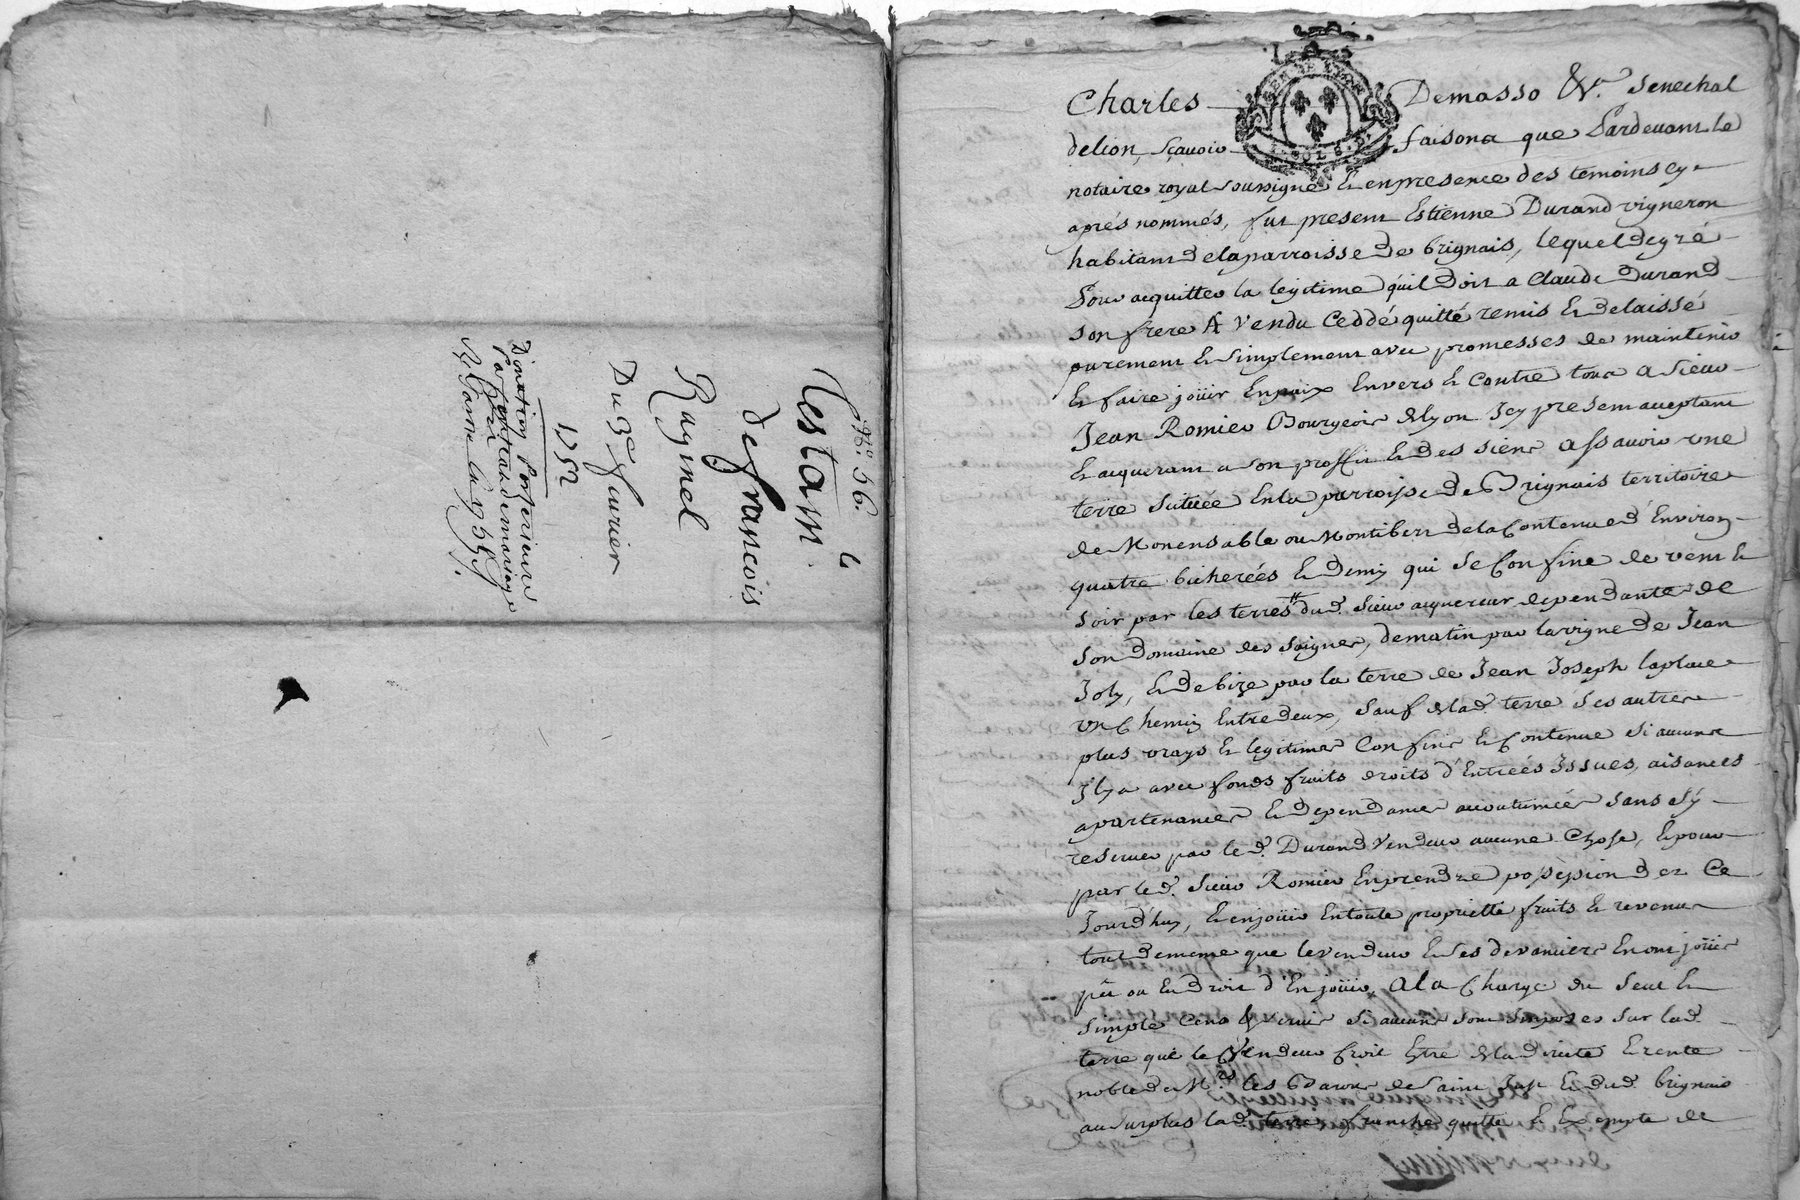 N.o 56.
Testam.t
de francois
Raginel
Du 3e feurier
1752
Donation posterieure
par contrat de mariage
Charles Demasso &r. Senechal
delion, sçauoir faisons que Pardeuant le
notaire royal soussigné & en presence des temoins cy-
aprés nommés, fut present Estienne Durand vigneron
habitant de la parroisse de brignais, lequel de gré
Pour acquitter la legitime qu'il doit a Claude Durand
son frere A Vendu Ceddé quitté remis & delaissé
purement & simplement auec promesses de maintenir
& faire joüir En paix Envers & Contre tous a Sieur
Jean Romieu Bourgeois de lyon Icy present acceptant
& acquerant a son proffit & des siens assauoir une
terre scituée En la parroisse de Brignais territoire
de Monensable ou Montibert de la Contenue d'Environ
quatre bicherées & demy qui se Confine de vent &
soir par les terres dud. Sieur acquereur dependante de
son domaine des Saignes, de matin par la vigne de Jean
Joly, & de bize par la terre de Jean Joseph laplace
un Chemin Entredeux, Sauf de lad. terre ses autres
plus vrays & legitimes Confins & Contenue si aucuns
Il y a avec fonds fruits droits d'Entrées Issues, aisances
apartenances & dependances accoutumées sans s'y
reseruer par led. Durand Vendeur aucune Chose, & pour
par led. Sieur Romieu En prendre possession dez Ce
Jourd'huy, & en joüir En toute proprietté fruits & revenus
tout de meme que le vendeur & ses devanciers En ont joüir
pû ou Eu Droit d'En joüir, A la Charge du seul &
simple Cens & servis si aucuns sont Imposés sur lad.
terre que le Vendeur Croit Estre de la directe & rente
noble de M.rs les Barons de saint Just & dud. brignais
au surplus lad. terre franche quitte & Exempte de